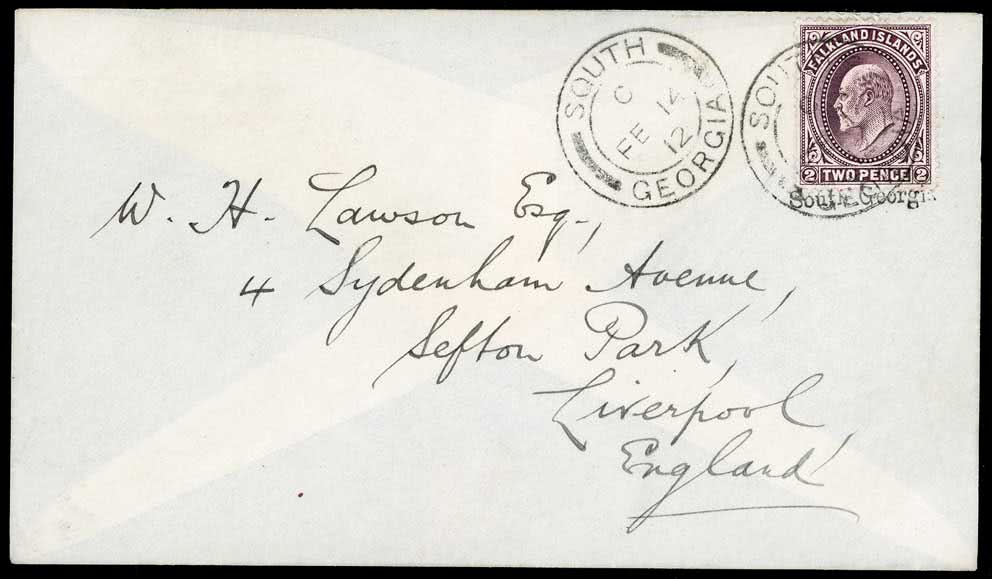 SOUTH GEORGIA
C
FE 14
12
SOUTH
FALKLAND ISLANDS
2 TWO PENCE 2
South Georgia
W. H. Lawson Esq.,
4 Sydenham Avenue,
Sefton Park,
Liverpool,
England